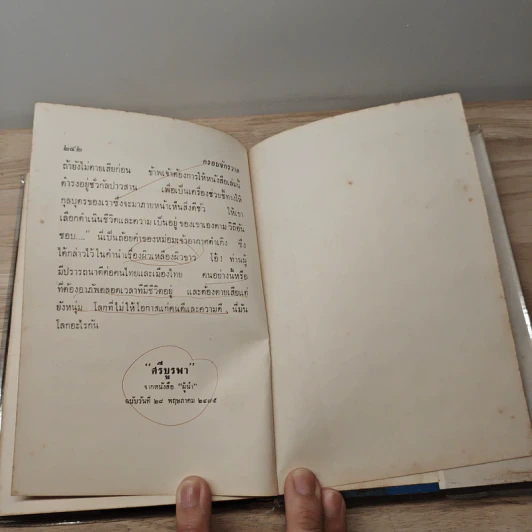 ๒๔๒
กรอบจักรวาล
ถ้ายังไม่ตายเสียก่อน ข้าพเจ้าต้องการให้หนังสือเล่มนี้
ดำรงอยู่ชั่วกัลปาวสาน เพื่อเป็นเครื่องช่วยชี้ทางให้
กุลบุตรของเราซึ่งจะมาภายหน้าเห็นสิ่งดีชั่ว ให้เขา
เลือกดำเนินชีวิตและความเป็นอยู่ของเขาเองตามวิถีอัน
ชอบ...." นี่เป็นถ้อยคำของหม่อมเจ้าอากาศดำเกิง ซึ่ง
ได้กล่าวไว้ในคำนำเรื่องผิวเหลืองผิวขาว โอ้! ท่านผู้
มีปรารถนาดีต่อคนไทยและเมืองไทย คนอย่างนี้หรือ
ที่ต้องอาภัพตลอดเวลาที่มีชีวิตอยู่ และต้องตายเสียแต่
ยังหนุ่ม โลกที่ไม่ให้โอกาสแก่คนดีและความดี, นี่มัน
โลกอะไรกัน
"ศรีบูรพา"
จากหนังสือ "ผู้นำ"
ฉบับวันที่ ๒๘ พฤษภาคม ๒๔๗๕